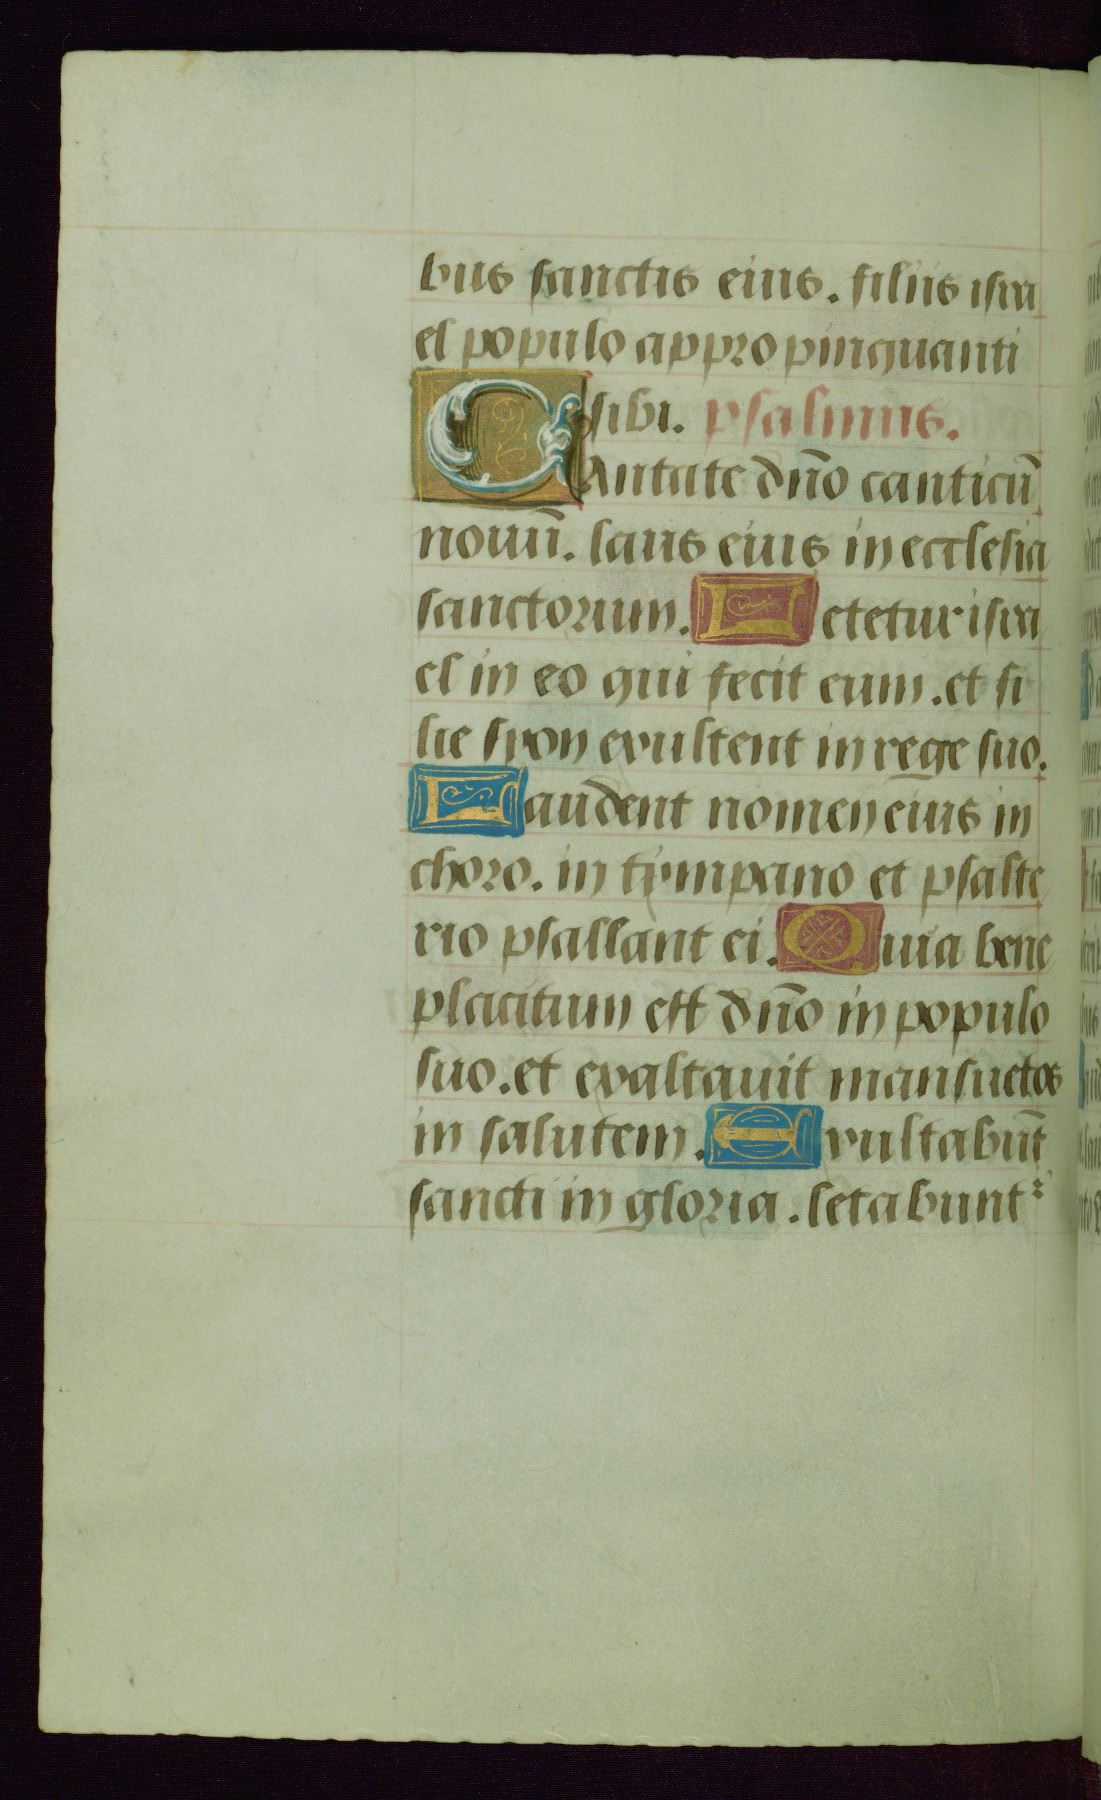 bus sanctis eius. filiis isra
el populo appropinquanti
sibi. psalmus.
Cantate dño canticū
nouū. laus eius in ecclesia
sanctorum. Letetur isra
el in eo qui fecit eum. et fi
lie syon exultent in rege suo.
Laudent nomen eius in
choro. in tympano et psalte
rio psallant ei. Quia bene
placitum est dño in populo
suo. et exaltauit mansuetos
in salutem. Exultabūt
sancti in gloria. letabunt᷑